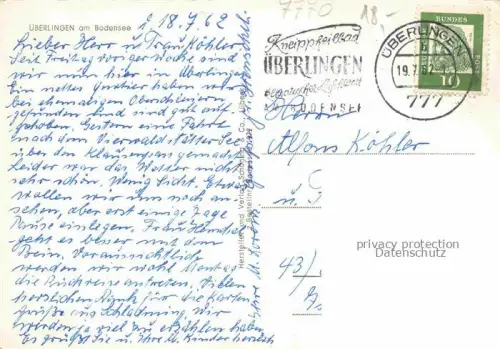 ÜBERLINGEN am Bodensee
Ü 18.7.62
7770
18.-
Lieber Herr und Frau Köhler,
Seit Freitag voriger Woche sind
wir nun hier in Überlingen.
Ein nettes Quartier haben
wir bei ehemaligen
gefunden und sind gut auf-
gehoben. Gestern eine Fahrt
nach dem Vierwald-stätter-See
über den Klausenpass gemacht.
Leider war das Wetter nicht
sehr schön. Wenig Sicht. Etwas
wollen wir uns noch an-
sehen, aber erst einige Tage
Pause einlegen. Frau
geht es besser mit dem
Bein. Voraussichtlich
werden wir wohl Montag
die Rückreise antreten. Vielen
herzlichen Dank für die Karten-
grüße aus Schladming. Wir
werden ja viel zu erzählen haben.
Es grüßt Sie u. Ihre Kinder herzlich
Kneippheilbad
ÜBERLINGEN
AM BODENSEE
ÜBERLINGEN
19.7.62
777
BUNDES
POST
10
Herrn
Alfons Köhler
u. F
43/
privacy protection
Datenschutz